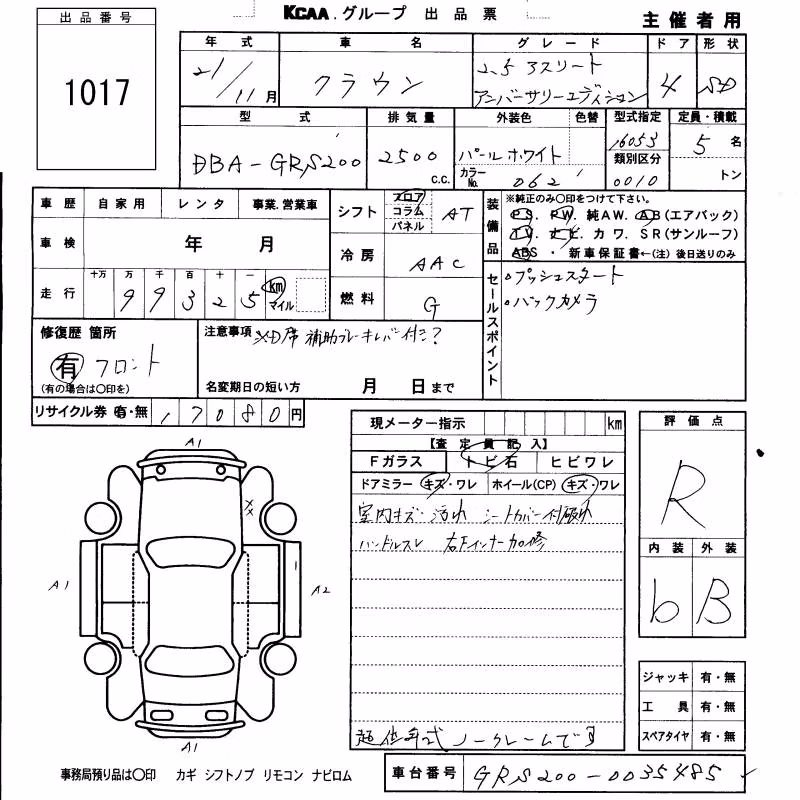 出品番号
KCAA.グループ 出品票
主催者用
1017
年式 車名 グレード ドア 形状
21/11月 クラウン 2.5 アスリート アニバーサリーエディション 4 SD
型式 排気量 外装色 色替 型式指定 定員・積載
DBA-GRS200 2500 c.c. パールホワイト カラーNo. 062 16053 5名
類別区分 0010 トン
車歴 自家用 レンタ 事業.営業車
シフト フロア コラム パネル AT
装備品 ※純正のみ〇印をつけて下さい。
PS. PW. 純AW. AB(エアバック)
TV. ナビ. カワ. SR(サンルーフ)
ABS ・ 新車保証書←(注)後日送りのみ
車検 年 月
冷房 AAC
走行 十万 万 千 百 十 一
99325 km マイル
燃料 G
セールスポイント
。プッシュスタート
。バックカメラ
修復歴 箇所
有 フロント
(有の場合は〇印を)
注意事項 ※D席 補助ブレーキレバー付き?
名変期日の短い方 月 日まで
リサイクル券 有・無 17080円
現メーター指示 km
評価点
【査定員記入】
Fガラス トビ石 ヒビワレ
ドアミラー キズ・ワレ ホイール(CP) キズ・ワレ
室内キズ 汚れ シートカバー付破れ
ハンドルスレ 右Fインナー加修
R
内装 外装
b B
A1
XX
A1
A2
A1
ジャッキ 有・無
工具 有・無
スペアタイヤ 有・無
超低年式 ノークレームです
事務局預り品は〇印 カギ シフトノブ リモコン ナビロム
車台番号 GRS200-0035485